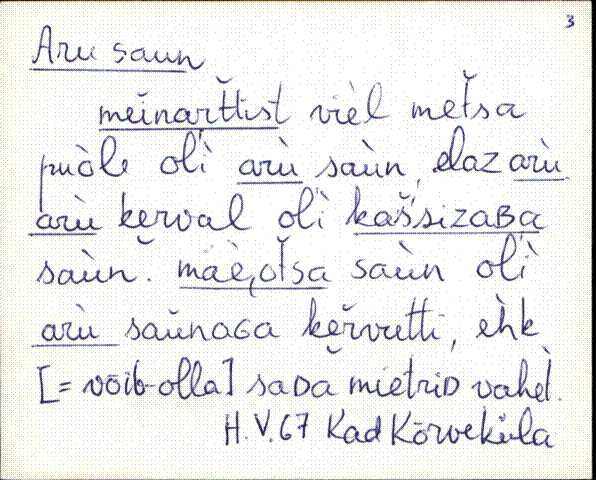 3
Aru saun
meìnar̆t̆tist vièl met̆sa
puòle olì arù saùn, elaz arù
arù kerval olì kaššizaBa
saùn. maè,ot̆sa saùn olì
arù saŭnaGa kĕrvutti, ehk
[= võib-olla] saDă mietriD vahel.
H.V.67 Kad Kõrveküla